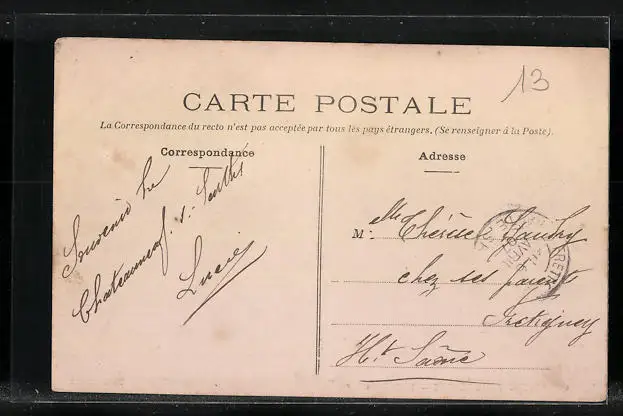 13
CARTE POSTALE
La Correspondance du recto n'est pas acceptée par tous les pays étrangers. (Se renseigner à la Poste).
Correspondance
Adresse
Souvenir de
Chateauneuf. s.
Lucie
M elle Thérèse
chez ses parents
Fretigney
Hte Saône